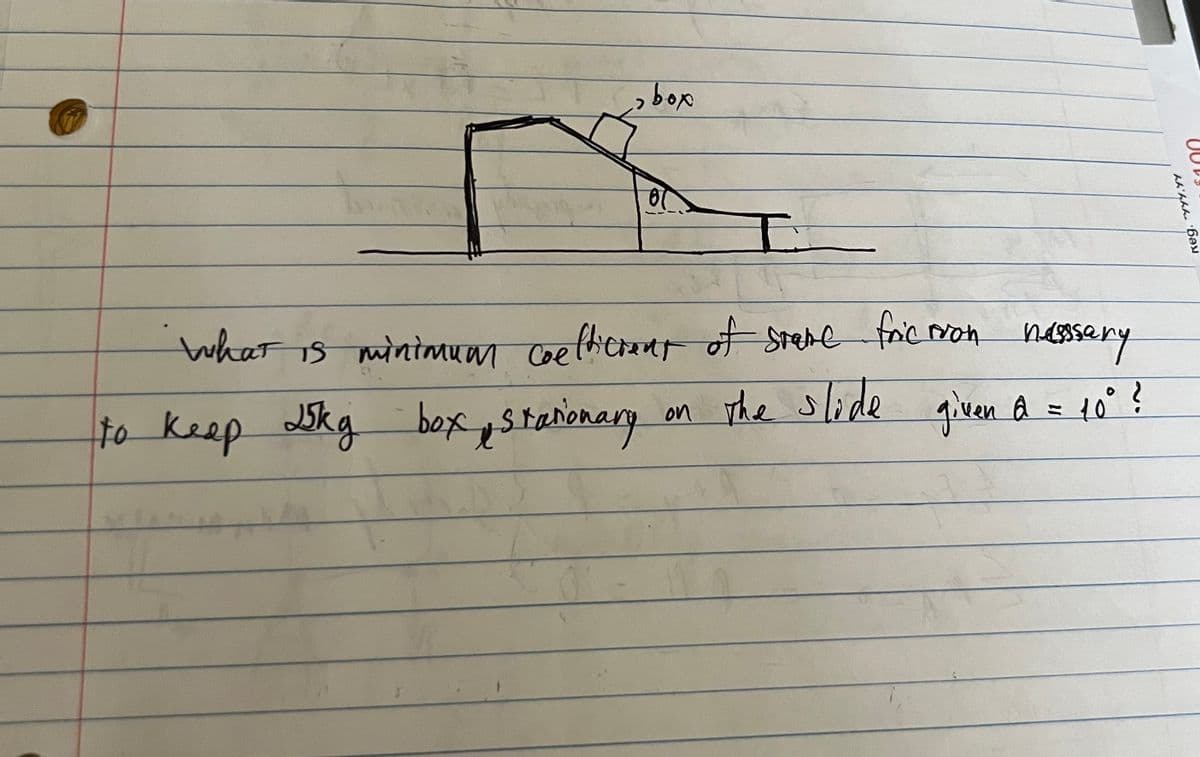 box
θ
What is minimum coefficient of static friction necessary
to keep 25kg box stationary on the slide given θ = 10° ?